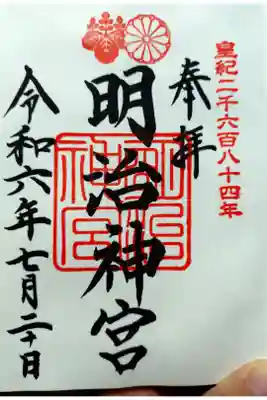 皇紀二千六百八十四年
奉拝
明治神宮
明治神宮
令和六年七月二十日